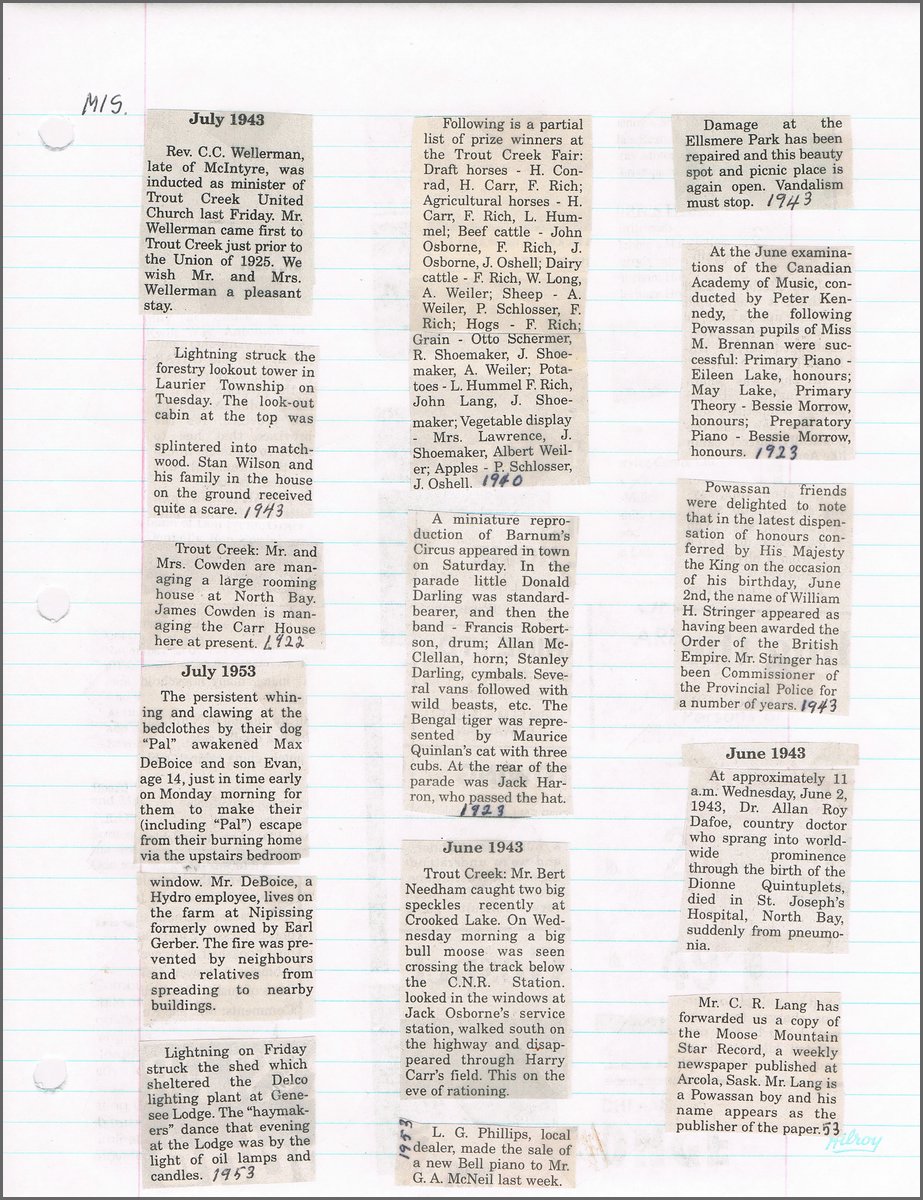 MIS.
July 1943
Rev. C.C. Wellerman,
late of McIntyre, was
inducted as minister of
Trout Creek United
Church last Friday. Mr.
Wellerman came first to
Trout Creek just prior to
the Union of 1925. We
wish Mr. and Mrs.
Wellerman a pleasant
stay.
Lightning struck the
forestry lookout tower in
Laurier Township on
Tuesday. The look-out
cabin at the top was
splintered into match-
wood. Stan Wilson and
his family in the house
on the ground received
quite a scare. 1943
Trout Creek: Mr. and
Mrs. Cowden are man-
aging a large rooming
house at North Bay.
James Cowden is man-
aging the Carr House
here at present. 1922
July 1953
The persistent whin-
ing and clawing at the
bedclothes by their dog
“Pal” awakened Max
DeBoice and son Evan,
age 14, just in time early
on Monday morning for
them to make their
(including “Pal”) escape
from their burning home
via the upstairs bedroom
window. Mr. DeBoice, a
Hydro employee, lives on
the farm at Nipissing
formerly owned by Earl
Gerber. The fire was pre-
vented by neighbours
and relatives from
spreading to nearby
buildings.
Lightning on Friday
struck the shed which
sheltered the Delco
lighting plant at Gene-
see Lodge. The “haymak-
ers” dance that evening
at the Lodge was by the
light of oil lamps and
candles. 1953
Following is a partial
list of prize winners at
the Trout Creek Fair:
Draft horses - H. Con-
rad, H. Carr, F. Rich;
Agricultural horses - H.
Carr, F. Rich, L. Hum-
mel; Beef cattle - John
Osborne, F. Rich, J.
Osborne, J. Oshell; Dairy
cattle - F. Rich, W. Long,
A. Weiler; Sheep - A.
Weiler, P. Schlosser, F.
Rich; Hogs - F. Rich;
Grain - Otto Schermer,
R. Shoemaker, J. Shoe-
maker, A. Weiler; Pota-
toes - L. Hummel F. Rich,
John Lang, J. Shoe-
maker; Vegetable display
- Mrs. Lawrence, J.
Shoemaker, Albert Weil-
er; Apples - P. Schlosser,
J. Oshell. 1940
A miniature repro-
duction of Barnum’s
Circus appeared in town
on Saturday. In the
parade little Donald
Darling was standard-
bearer, and then the
band - Francis Robert-
son, drum; Allan Mc-
Clellan, horn; Stanley
Darling, cymbals. Seve-
ral vans followed with
wild beasts, etc. The
Bengal tiger was repre-
sented by Maurice
Quinlan’s cat with three
cubs. At the rear of the
parade was Jack Har-
ron, who passed the hat.
1923
June 1943
Trout Creek: Mr. Bert
Needham caught two big
speckles recently at
Crooked Lake. On Wed-
nesday morning a big
bull moose was seen
crossing the track below
the C.N.R. Station.
looked in the windows at
Jack Osborne’s service
station, walked south on
the highway and disap-
peared through Harry
Carr’s field. This on the
eve of rationing.
1953
L. G. Phillips, local
dealer, made the sale of
a new Bell piano to Mr.
G. A. McNeil last week.
Damage at the
Ellsmere Park has been
repaired and this beauty
spot and picnic place is
again open. Vandalism
must stop. 1943
At the June examina-
tions of the Canadian
Academy of Music, con-
ducted by Peter Ken-
nedy, the following
Powassan pupils of Miss
M. Brennan were suc-
cessful: Primary Piano -
Eileen Lake, honours;
May Lake, Primary
Theory - Bessie Morrow,
honours; Preparatory
Piano - Bessie Morrow,
honours. 1923
Powassan friends
were delighted to note
that in the latest dispen-
sation of honours con-
ferred by His Majesty
the King on the occasion
of his birthday, June
2nd, the name of William
H. Stringer appeared as
having been awarded the
Order of the British
Empire. Mr. Stringer has
been Commissioner of
the Provincial Police for
a number of years. 1943
June 1943
At approximately 11
a.m. Wednesday, June 2,
1943, Dr. Allan Roy
Dafoe, country doctor
who sprang into world-
wide prominence
through the birth of the
Dionne Quintuplets,
died in St. Joseph’s
Hospital, North Bay,
suddenly from pneumo-
nia.
Mr. C. R. Lang has
forwarded us a copy of
the Moose Mountain
Star Record, a weekly
newspaper published at
Arcola, Sask. Mr. Lang is
a Powassan boy and his
name appears as the
publisher of the paper. 53
Hilroy